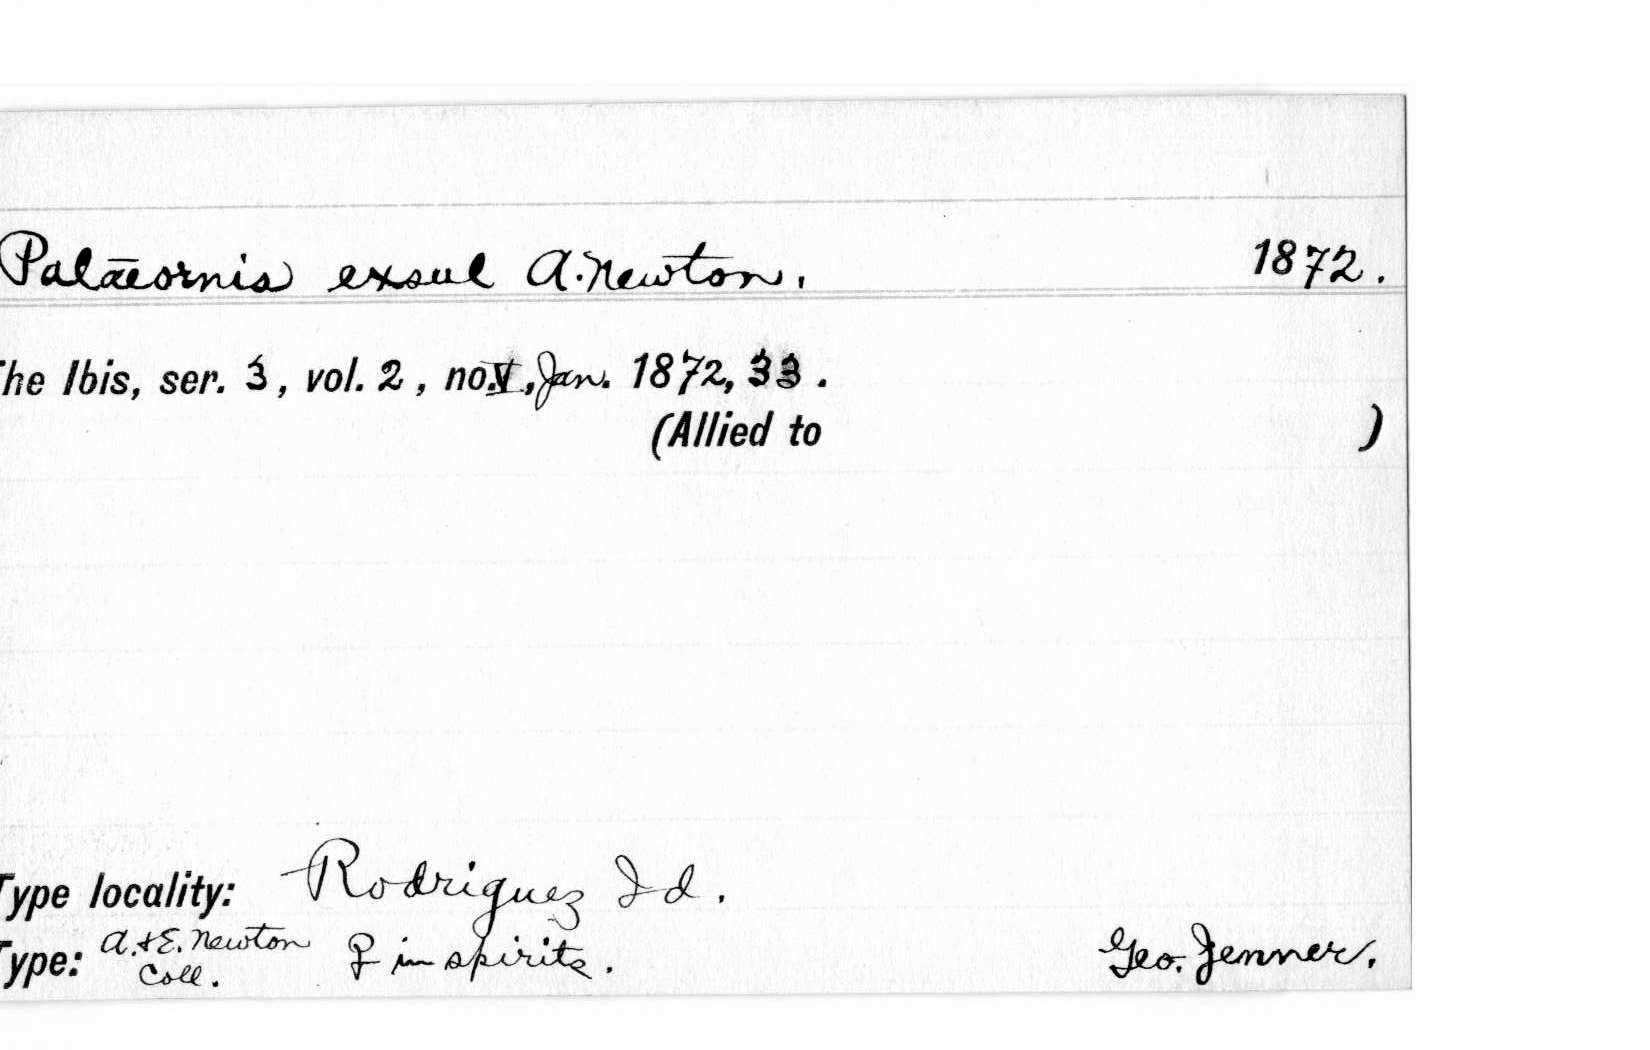 Palæornis exsul A. Newton. 1872.
The Ibis, ser. 3, vol. 2, no. V, Jan. 1872, 33.
(Allied to )
Type locality: Rodriguez Id.
Type: A. & E. Newton Coll. ♀ in spirits. Geo. Jenner.